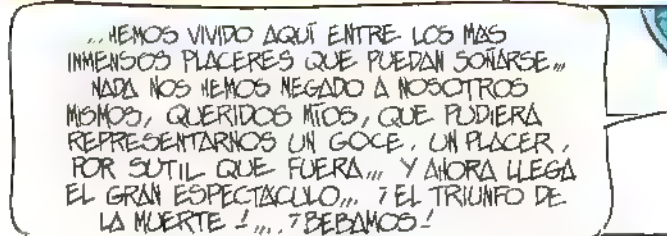 ... HEMOS VIVIDO AQUÍ ENTRE LOS MAS
INMENSOS PLACERES QUE PUEDAN SOÑARSE...
NADA NOS HEMOS NEGADO A NOSOTROS
MISMOS, QUERIDOS MÍOS, QUE PUDIERA
REPRESENTARNOS UN GOCE, UN PLACER,
POR SUTIL QUE FUERA... Y AHORA LLEGA
EL GRAN ESPECTACULO... ¡EL TRIUNFO DE
LA MUERTE!... ¡BEBAMOS!